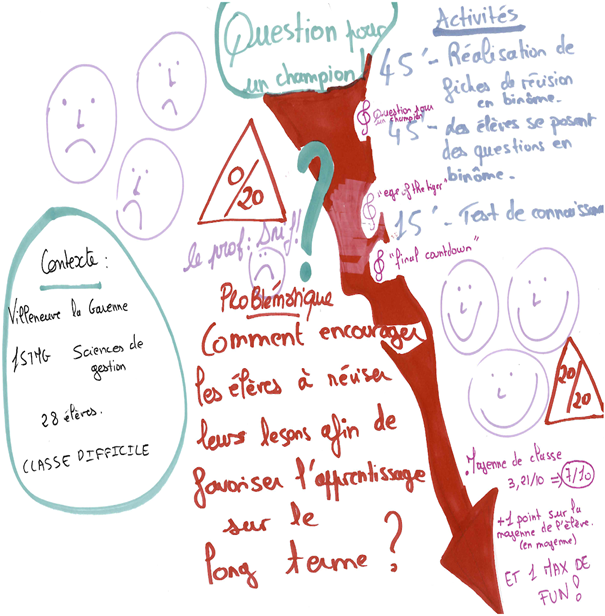 Question pour
un champion!
Activités
45' - Réalisation de
fiches de révision
en binôme.
Question pour
un champion
45' - des élèves se posent
des questions en
binôme.
"eye of the tiger"
15' - Test de connaissance
"final countdown"
0/20
?
le prof: Snif!
Contexte :
Villeneuve la Garenne
1STMG Sciences de
gestion
28 élèves.
CLASSE DIFFICILE
Problématique
Comment encourager
les élèves à réviser
leurs leçons afin de
favoriser l'apprentissage
sur le
long terme ?
20/20
Moyenne de classe
3,21/10 => 7/10
+1 point sur la
moyenne de l'élève.
(en moyenne)
ET 1 MAX DE
FUN !